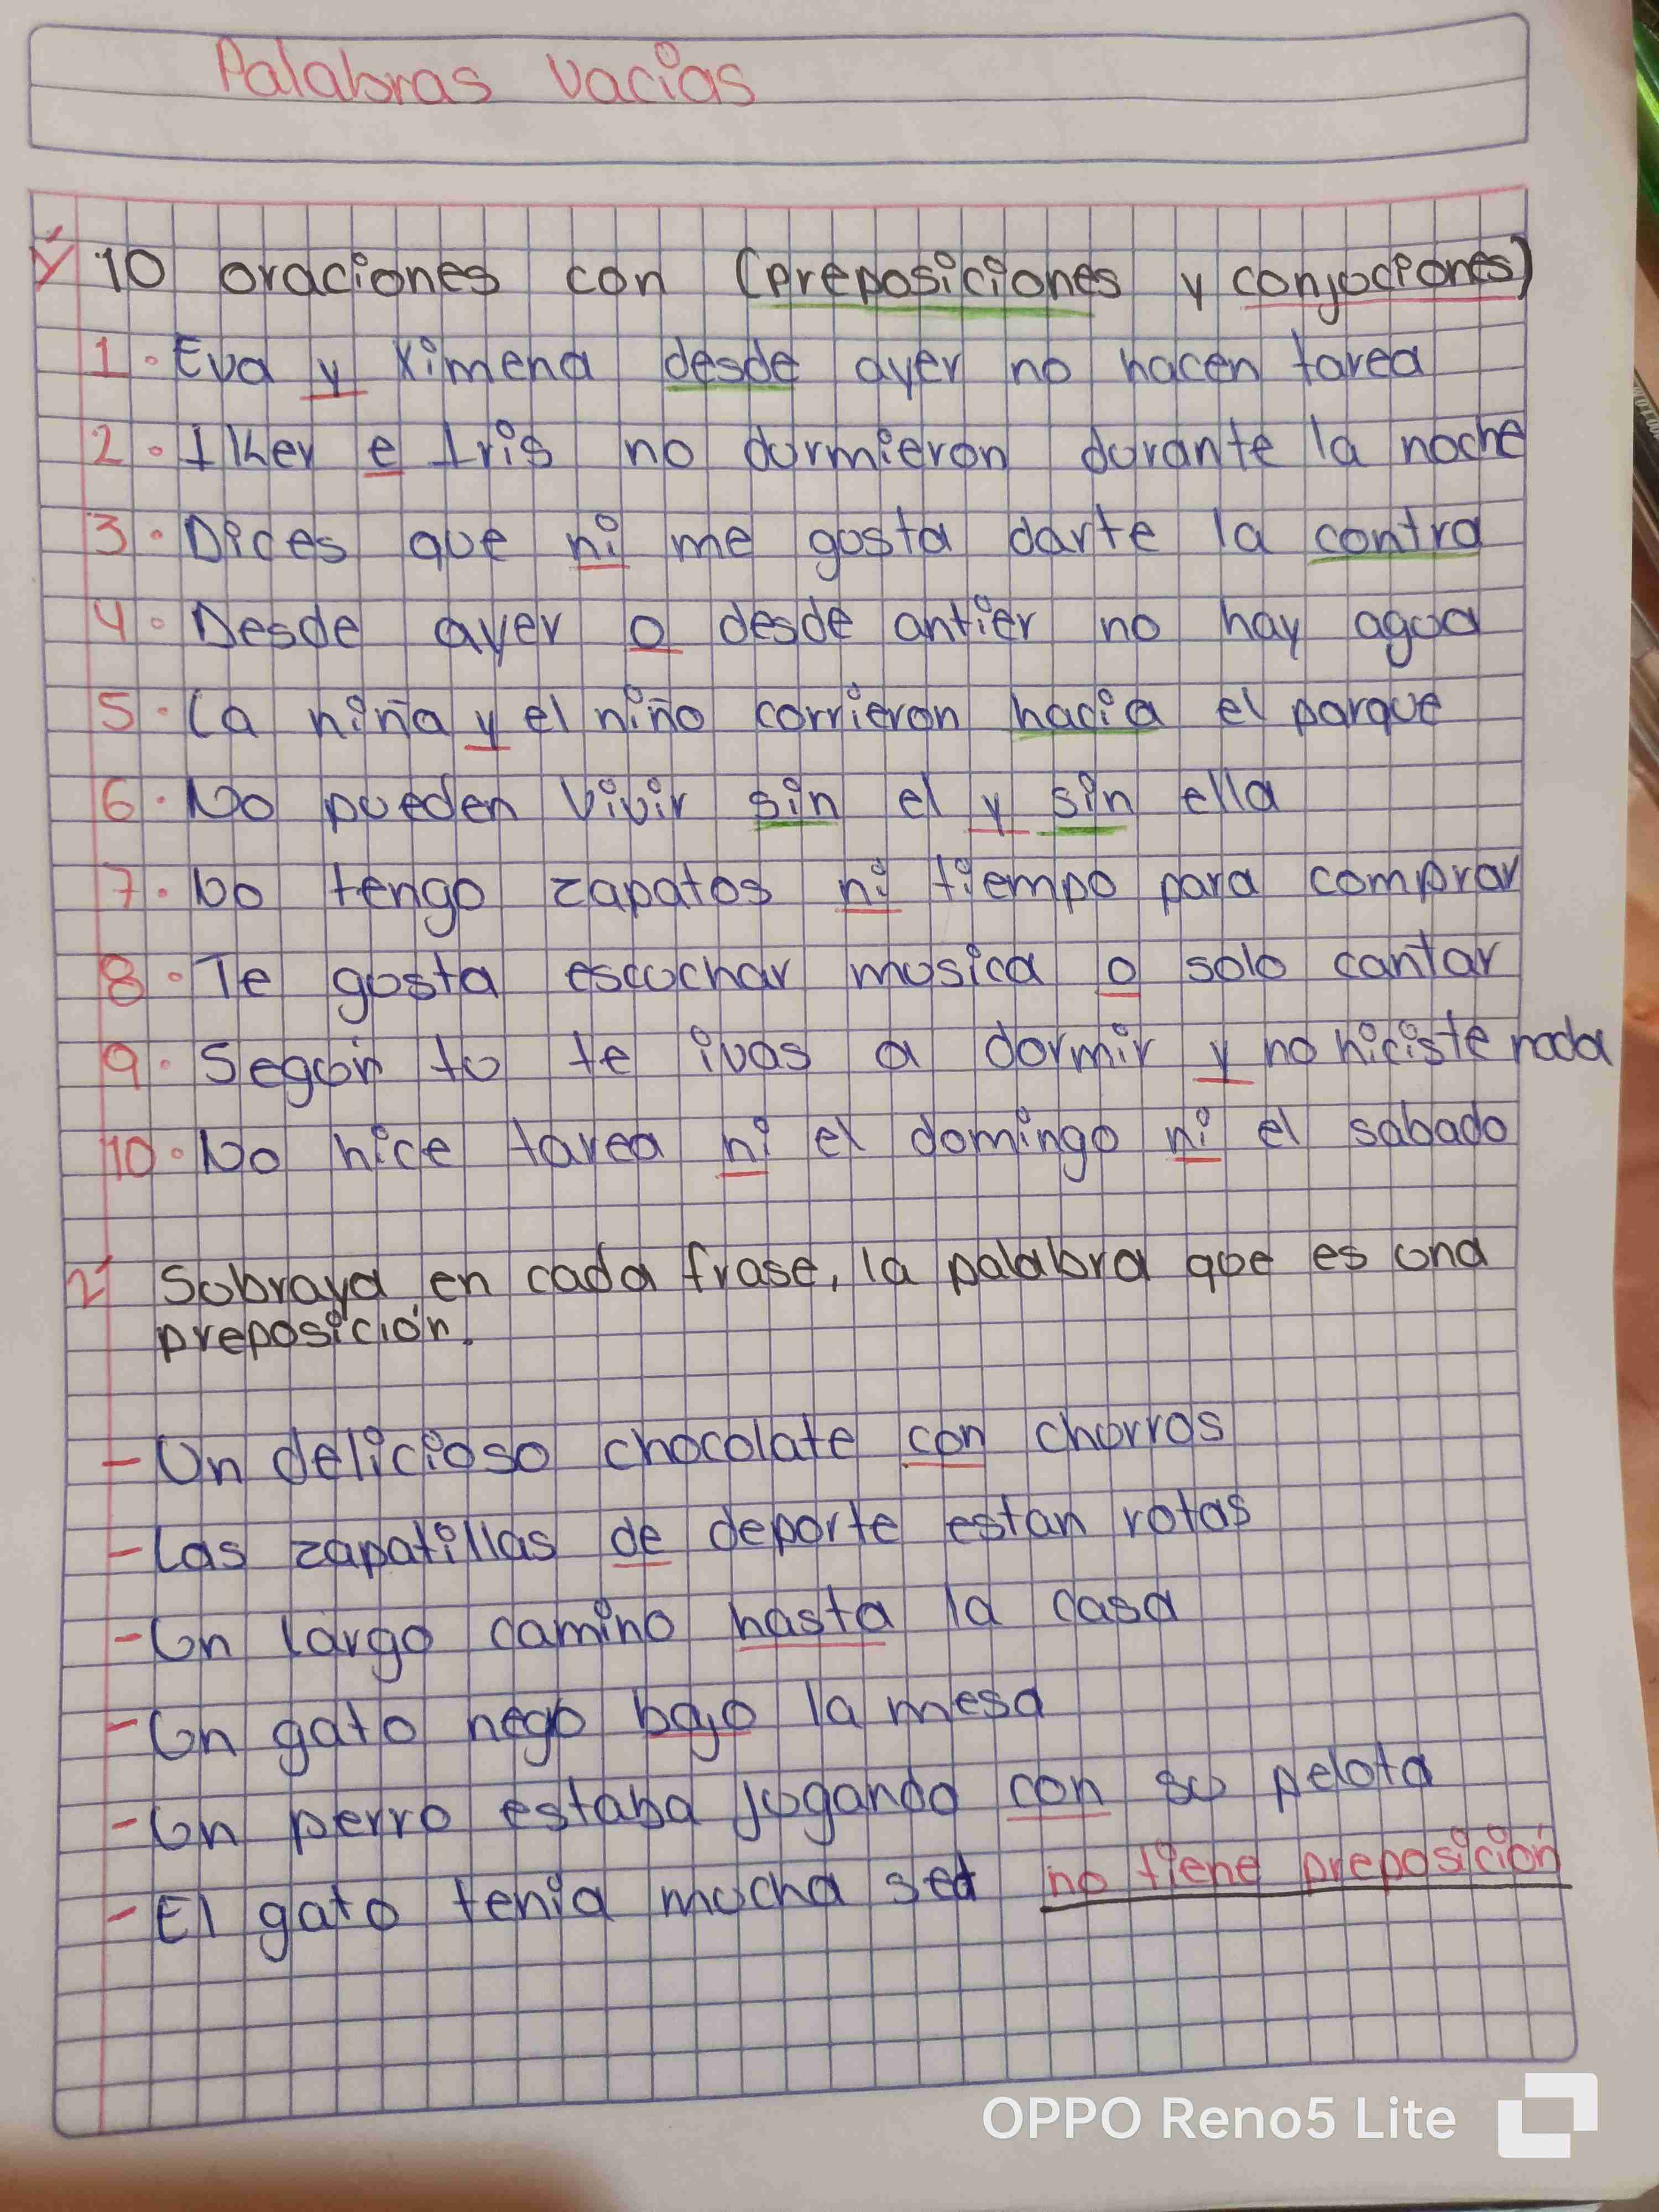 Palabras vacias
1' 10 oraciones con (preposiciones y conjuciones)
1. Eva y Ximena desde ayer no hacen tarea
2. Iker e Iris no durmieron durante la noche
3. Dices que ni me gusta darte la contra
4. Desde ayer o desde antier no hay agua
5. La niña y el niño corrieron hacia el parque
6. No pueden vivir sin el y sin ella
7. No tengo zapatos ni tiempo para comprar
8. Te gusta escuchar musica o solo cantar
9. Según tu te ivas a dormir y no hiciste nada
10. No hice tarea ni el domingo ni el sabado
2' Subraya en cada frase, la palabra que es una
preposición.
- Un delicioso chocolate con churros
- Las zapatillas de deporte estan rotas
- Un largo camino hasta la casa
- Un gato nego bajo la mesa
- Un perro estaba jugando con su pelota
- El gato tenia mucha sed no tiene preposición
OPPO Reno5 Lite